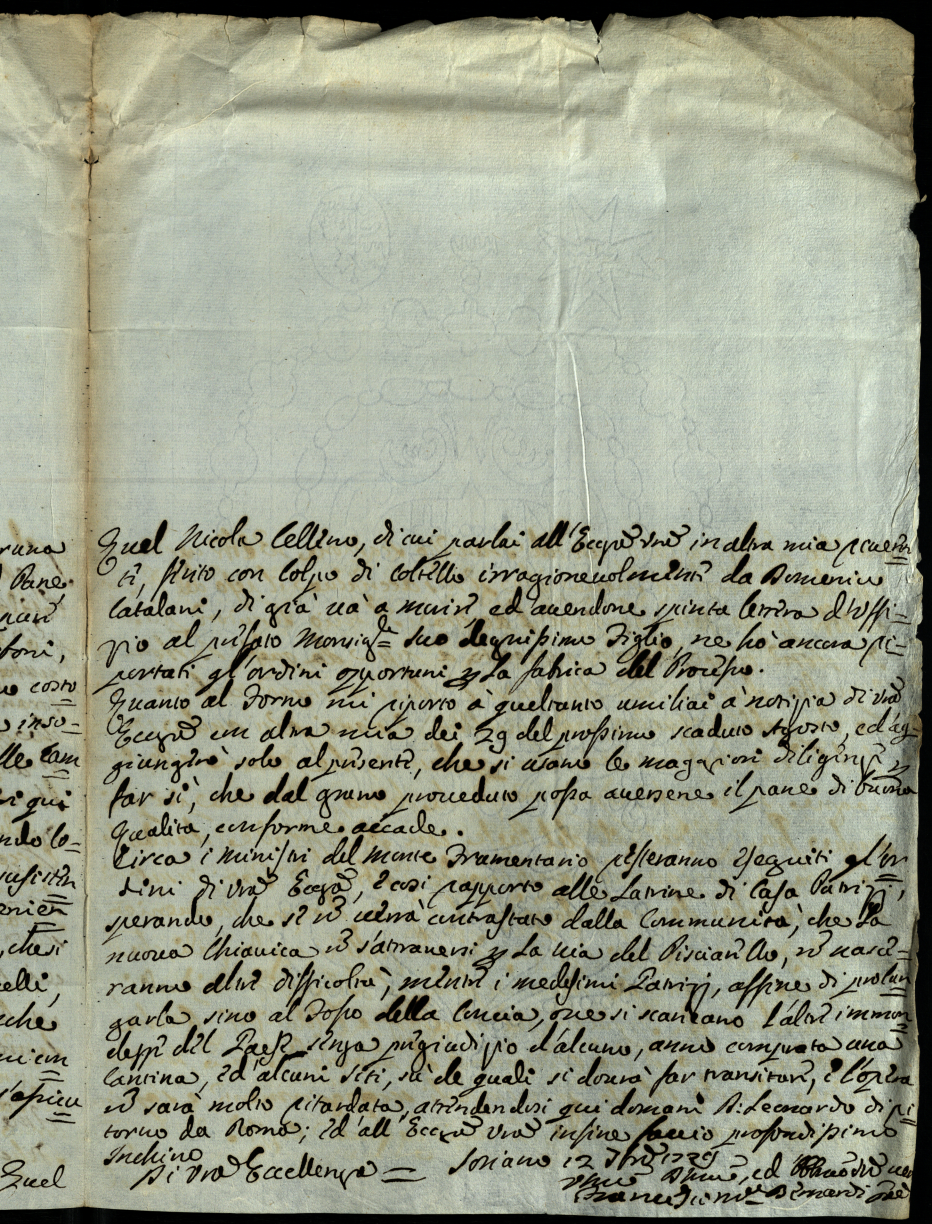 runa
Pane
foni,
costo
inso=
lle cam
ri qui
ndo lo=
sussisten
, che si
celli,
che
Quel
Quel Nicola Cellino, di cui parlai all'Eccza vra in altra mia
ti, ferito con colpo di coltello irragionevolmente da Domenico
Catalani, di già và à morire, ed avendone spinta lettera d'offi-
zio al prefato Monsigre suo degnissimo Figlio, ne hò ancora ri-
portati gl'ordini opportuni p la fabrica del Processo.
Quanto al Forno mi riporto à quel tanto umiliai à notizia di vra
Eccza con altra mia dei 29 del prossimo scaduto Agosto, ed ag-
giungerò solo al presente, che si usano le maggiori diligenze p
far sì, che dal grano proceduto possa aversene il pane di buona
qualità, conforme accade.
Circa i Ministri del Monte Frumentario resteranno eseguiti gl'or
dini di vra Eccza, e così rapporto alle Latrine di Casa Patrizj,
sperando, che se nõ verrà contrastato dalla Communità, che la
nuova Chiavica nõ s'attraversi p la via del Pisciarello, nõ nasce=
ranno altre difficoltà, mentre i medesimi Patrizj, affine di prolun
garla sino al Fosso della Concia, ove si scaricano l'altre immon
dezze del Paese senza pregiudizio d'alcuno, anno comprata una
Cantina, ed alcuni siti, sù de quali si dovrà far transitare, e l'opera
nõ sarà molto ritardata, attendendosi qui domani Mº Leonardo di ri
torno da Roma; ed all'Eccza vra infine faccio profondissimo
Inchino
Di vra Eccellenza = Soriano 12 7bre 1729
Umo Dmo, ed Obbmo
Bernardi